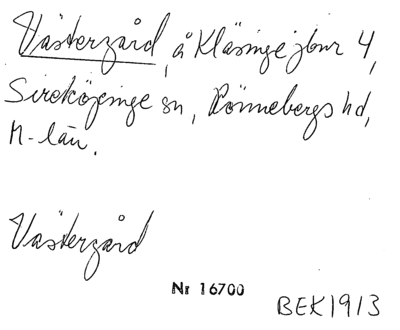 Västergård, å Kläsinge jbnr 4,
Sireköpinge sn, Rönnebergs hd,
M-län.
Västergård
Nr 16700
BEK 1913